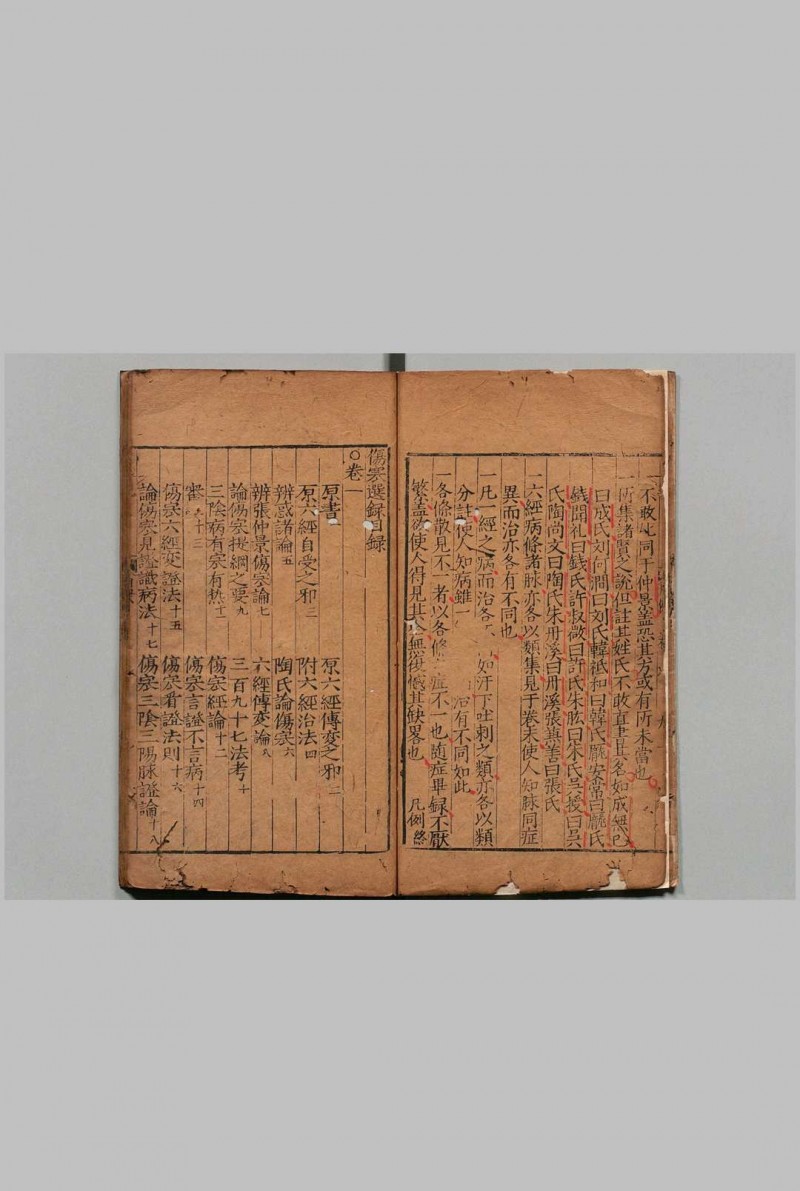 不敢比同于仲景蓋恐其方或有所未當也
一所集諸賢之說但註其姓氏不敢直書其名如成無已
曰成氏刘河澗曰刘氏韓祗和曰韓氏龐安常曰龐氏
錢聞礼曰錢氏許叔微曰許氏朱肱曰朱氏吳授曰吳
氏陶尚文曰陶氏朱丹溪曰丹溪張兼善曰張氏
一六經病條諸脉亦各以類集見于卷末使人知脉同症
異而治亦各有不同也
一凡一經之病而治各 如汗下吐刺之類亦各以類
分註使人知病雖一 治有不同如此
一各條散見不一者以各條 症不一也随症畢録不厭
繁蓋欲使人得見其全無復憾其缺畧也 凡例終
傷寒選録目録
○卷一
原書一 原六經傳變之邪二
原六經自受之邪三 附六經治法四
辨惑諸論五 陶氏論傷寒六
辨張仲景傷寒論七 六經傳変論八
論傷寒提綱之要九 三百九十七法考十
三陰病有寒有热十一 傷寒經論十二
審 十三 傷寒言證不言病十四
傷寒六經変證法十五 傷寒看證法則十六
論傷寒見證識病法十七 傷寒三陰三陽脉證論十八